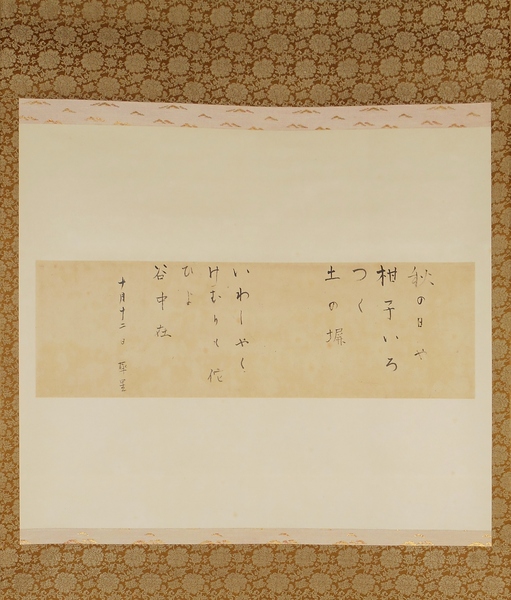 秋の日や
柑子いろ
つく
土の塀
いわしやく
けむりも佗
ひよ
谷中在
十月十二日